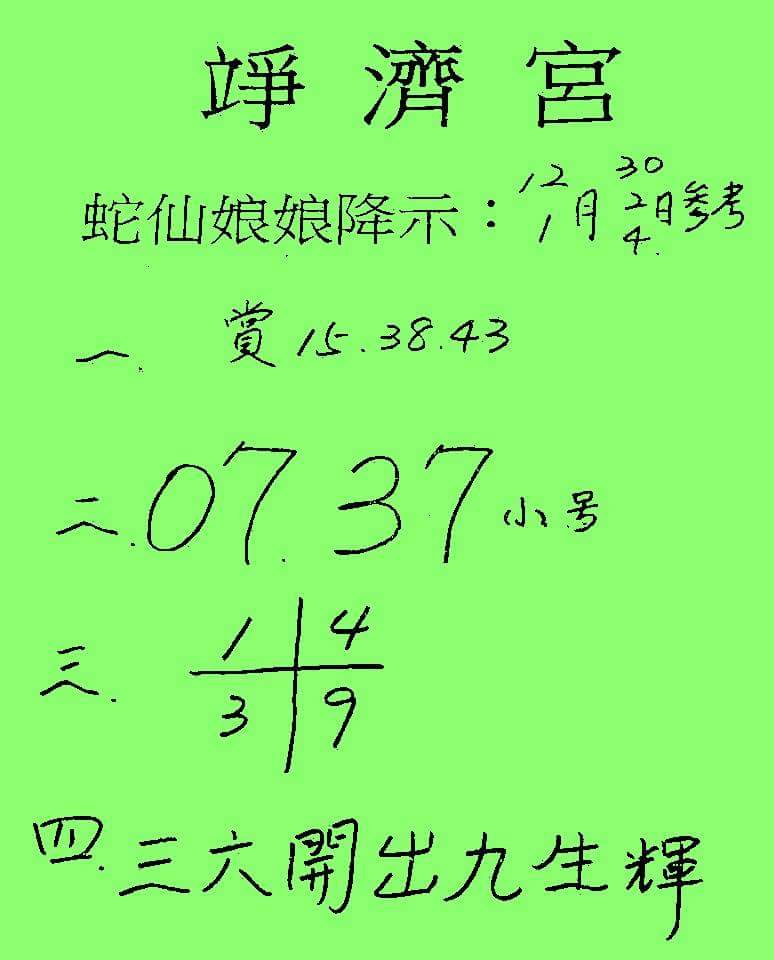 竫濟宮
蛇仙娘娘降示：12 30
1月 2日參考
4.
一. 賞 15.38.43
二. 07.37 小号
三. 1 4
3 9
四. 三六開出九生輝